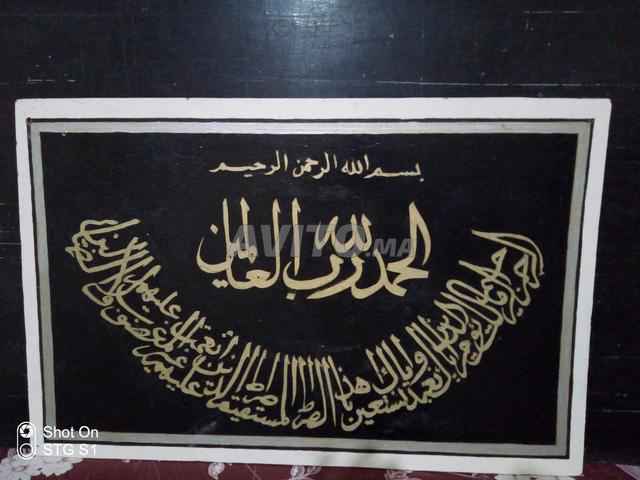 بسم الله الرحمن الرحيم
الحمد لله رب العالمين
الرحمن الرحيم مالك يوم الدين إياك نعبد وإياك نستعين اهدنا الصراط المستقيم صراط الذين أنعمت عليهم غير المغضوب عليهم ولا الضالين
AVITO.MA
Shot On
STG S1